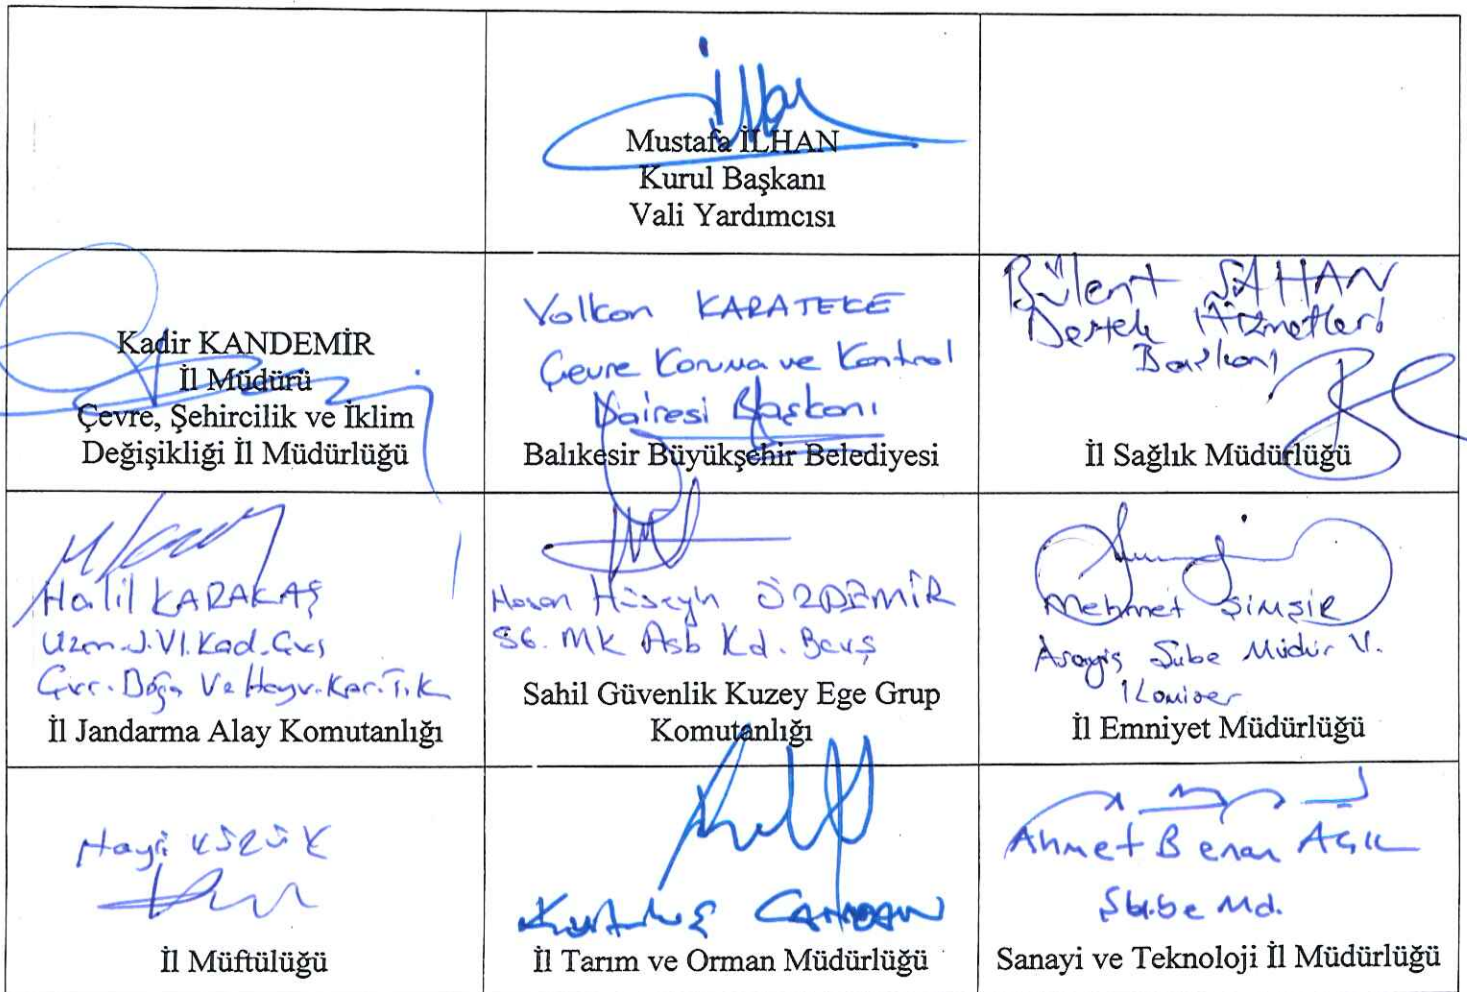 Mustafa İLHAN
Kurul Başkanı
Vali Yardımcısı
Kadir KANDEMİR
İl Müdürü
Çevre, Şehircilik ve İklim
Değişikliği İl Müdürlüğü
Volkan KARATEKE
Çevre Koruma ve Kontrol
Dairesi Başkanı
Balıkesir Büyükşehir Belediyesi
Bülent ŞAHAN
Destek Hizmetleri
Başkanı
İl Sağlık Müdürlüğü
Halil KARAKAŞ
Uzm.J.VI.Kad.Çvş
Çvr. Doğa Ve Hayv. Kor. T. K
İl Jandarma Alay Komutanlığı
Hasan Hüseyin ÖZDEMİR
SG. MK Asb Kd. Bçvş
Sahil Güvenlik Kuzey Ege Grup
Komutanlığı
Mehmet ŞİMŞİR
Asayiş Şube Müdür V.
Komiser
İl Emniyet Müdürlüğü
Hayri
İl Müftülüğü
İl Tarım ve Orman Müdürlüğü
Ahmet Benan AÇIK
Şube Md.
Sanayi ve Teknoloji İl Müdürlüğü